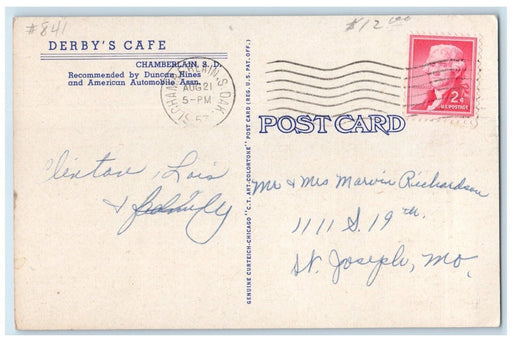 #841
$12.00
DERBY'S CAFE
CHAMBERLAIN, S. D.
Recommended by Duncan Hines
and American Automobile Assn.
CHAMBERLAIN, S. DAK.
AUG 21
5-PM
1957
2¢
U.S. POSTAGE
POST CARD
GENUINE CURTEICH-CHICAGO "C.T. ART-COLORTONE" POST CARD (REG. U.S. PAT. OFF.)
Clinton, Lois
& family
Mr & Mrs Marvin Richardson
1111 S. 19th.
St. Joseph, Mo.